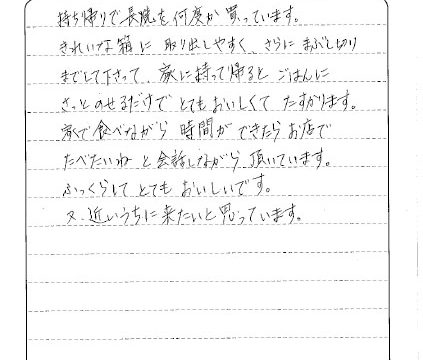 持ち帰りで長焼を何度か買っています。
きれいな箱に取り出しやすく、さらにまぶし切り
までして下さって、家に持って帰るとごはんに
さっとのせるだけでとてもおいしくてたすかります。
家で食べながら時間ができたらお店で
たべたいねと会話しながら頂いています。
ふっくらしてとてもおいしいです。
又、近いうちに来たいと思っています。